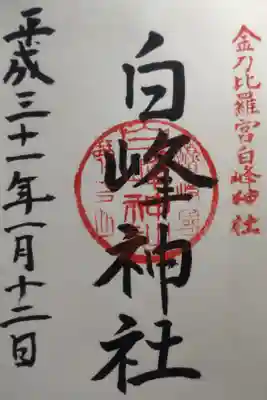 金刀比羅宮白峰神社
白峰神社
平成三十一年一月十二日